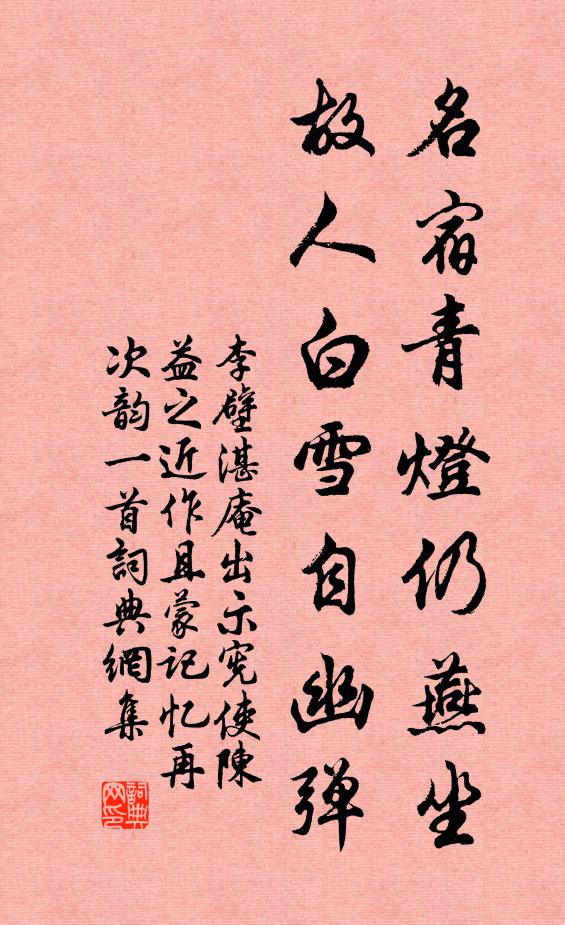 名宿青燈仍燕坐
故人白雪自幽彈
李壁湛庵出示宪使陳
益之近作且蒙记忆再
次韵一首詞典網集
詞典
网印